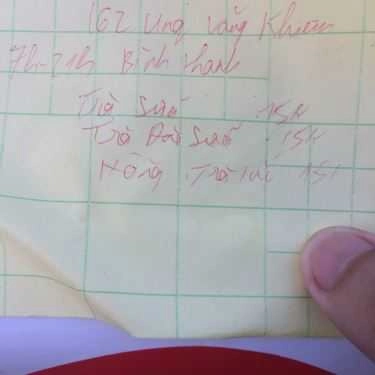 162 Ung Văn Khiêm
7h-21h Bình Thạnh
Trà Sữa 15k
Trà Đào Sữa 15k
Hồng Trà 15k